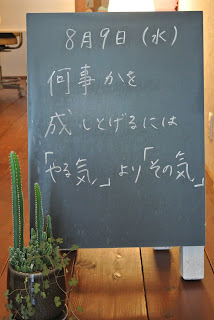 8月9日(水)
何事かを
成しとげるには
「やる気」より「その気」